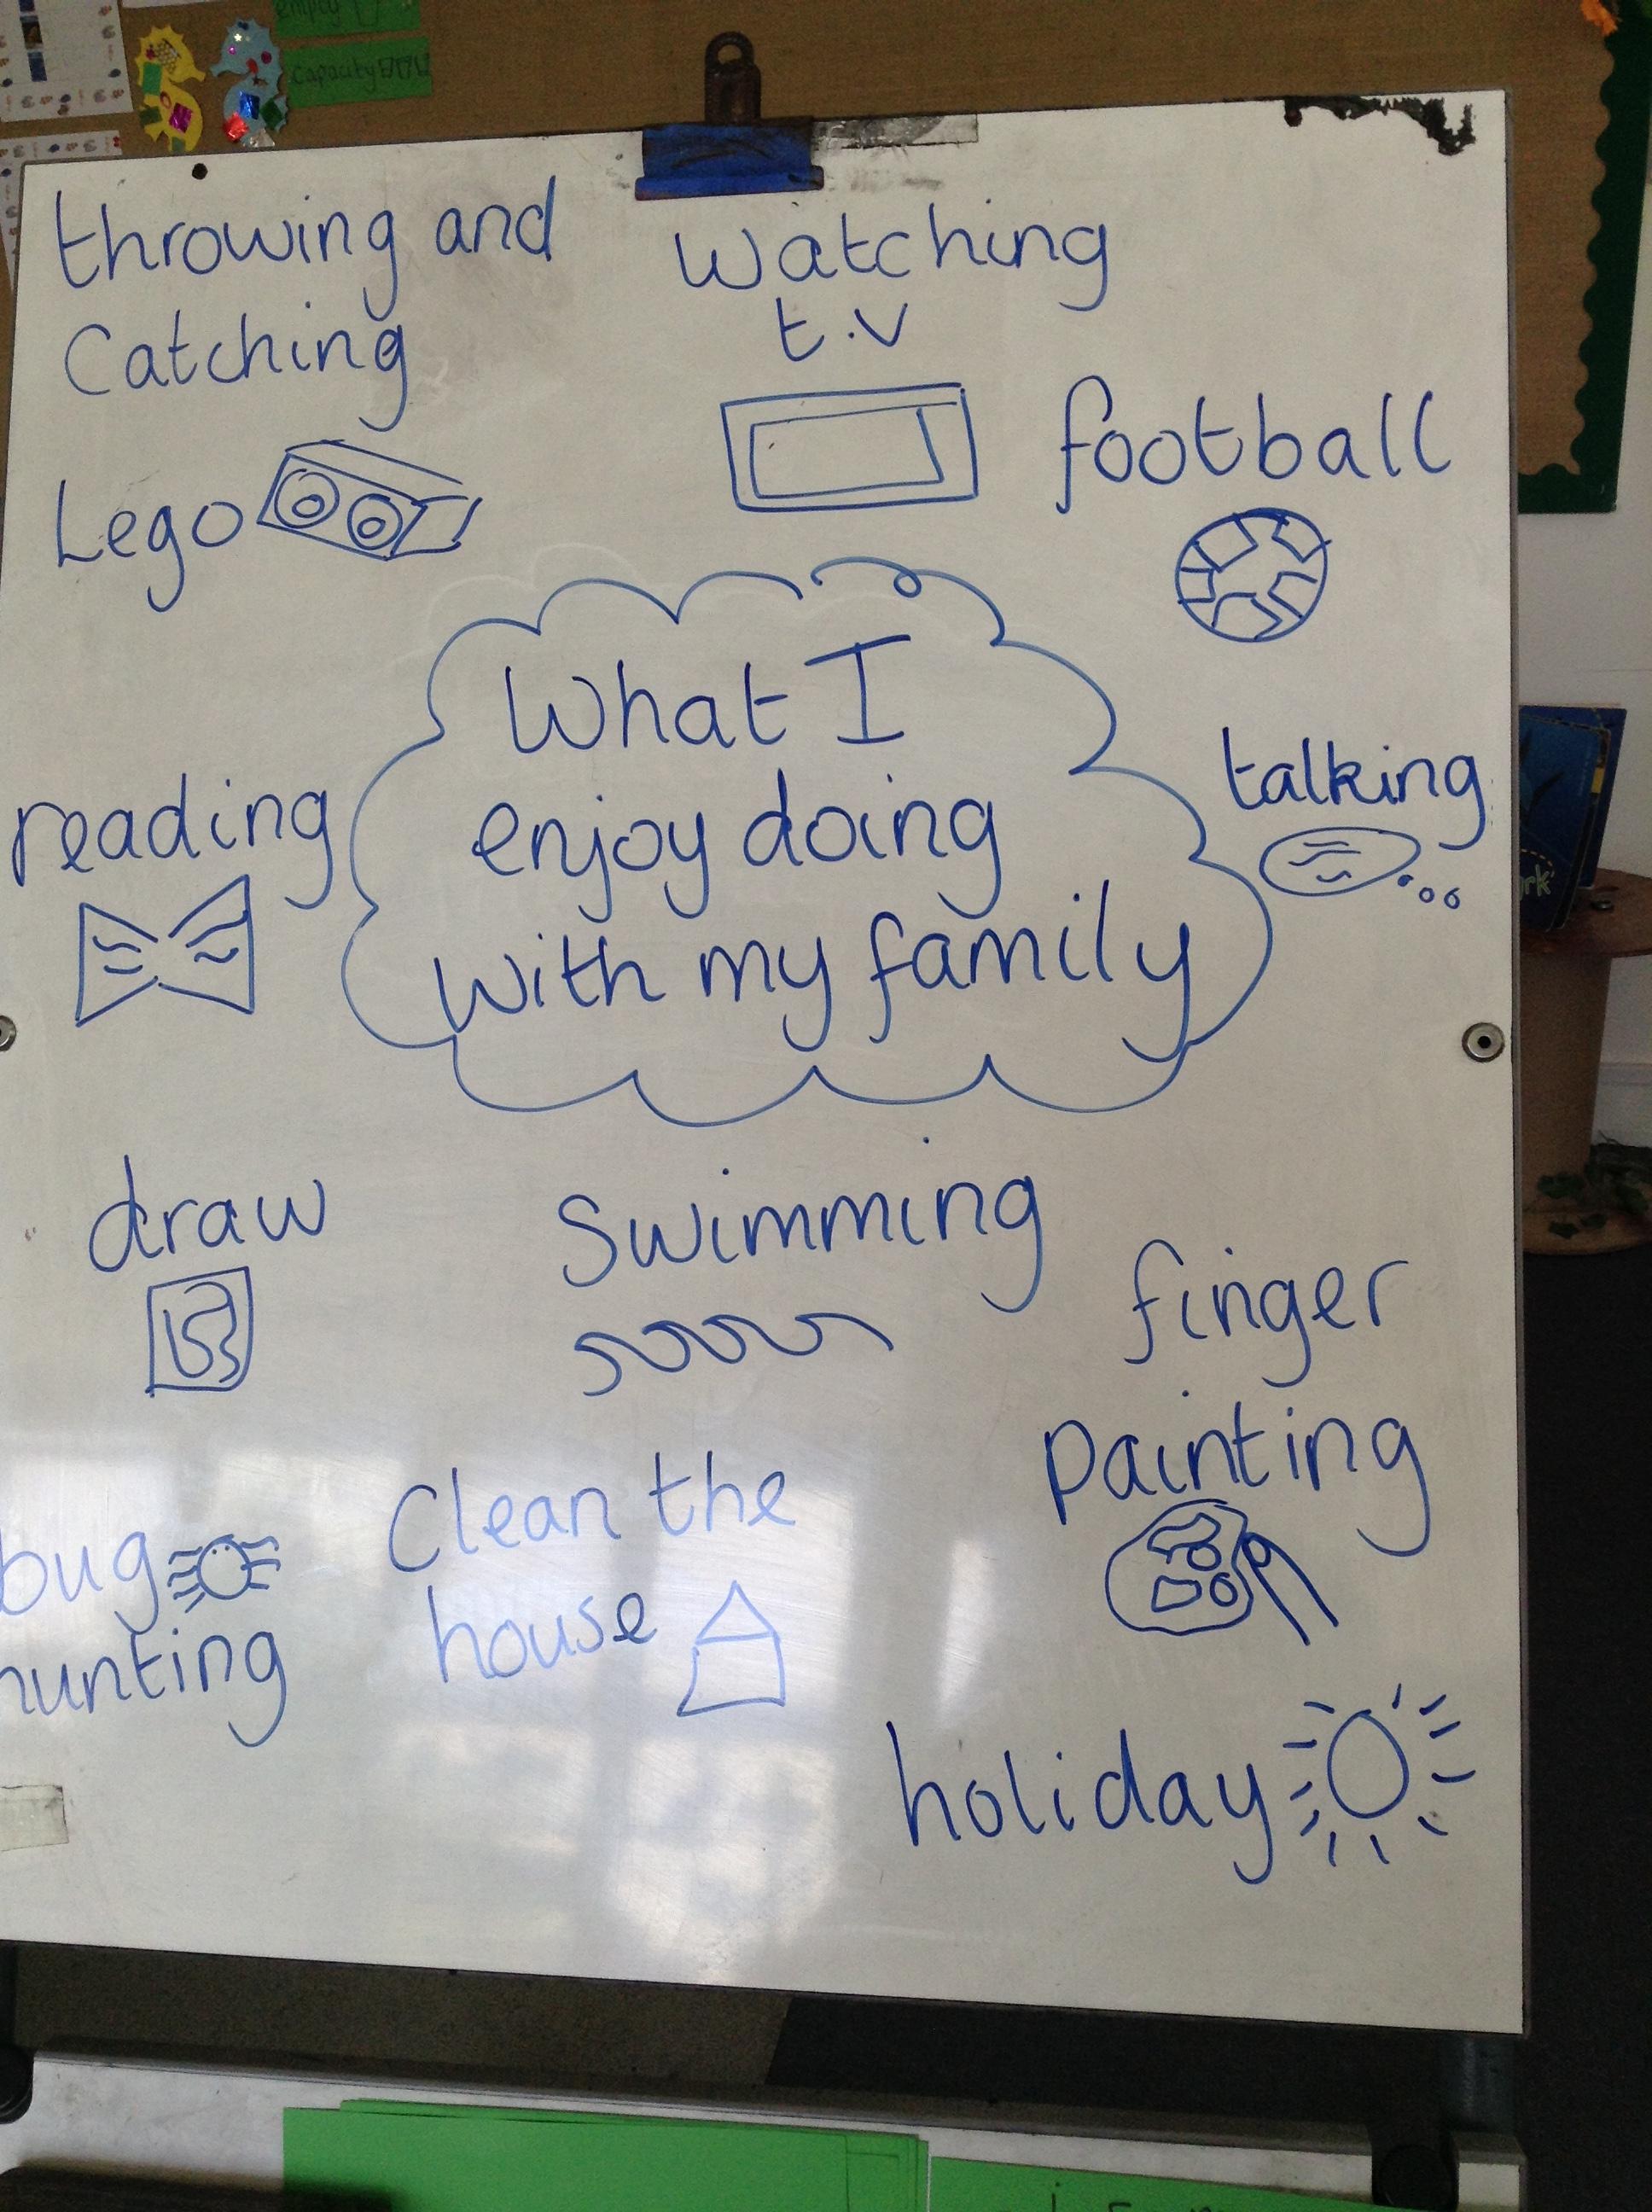 empty
capacity
throwing and
Catching
Watching
t.v
football
Lego
What I
enjoy doing
with my family
reading
talking
draw
Swimming
finger
Painting
bug
hunting
Clean the
house
holiday